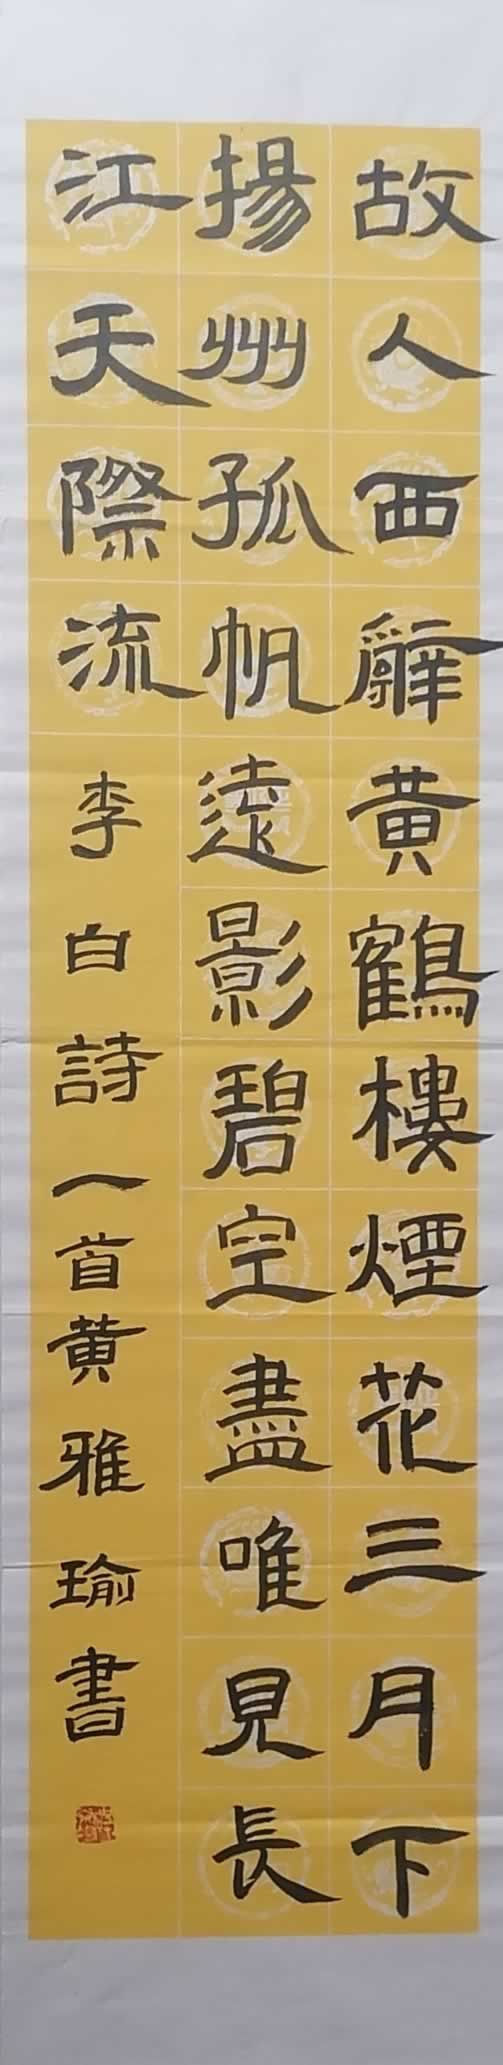 故人西辭黃鶴樓煙花三月下
揚州孤帆遠影碧空盡唯見長
江天際流
李白詩一首黃雅瑜書